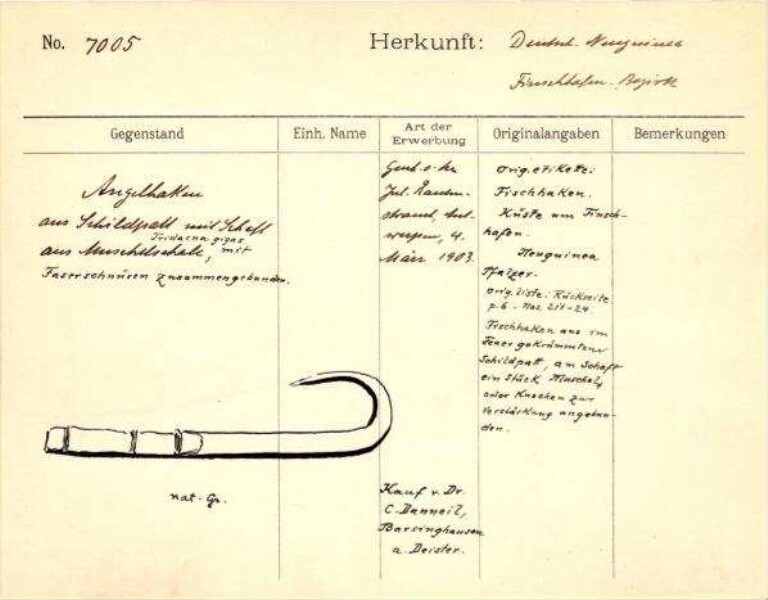 No. 7005
Herkunft: Deutsch. Neuguinea
Finschhafen. Bezirk
Gegenstand
Einh. Name
Art der
Erwerbung
Originalangaben
Bemerkungen
Angelhaken
aus Schildpatt mit Schaft
Tridacna gigas
aus Muschelschale, mit
Faserschnüren zusammengebunden.
nat. Gr.
Jul.
4.
März 1903.
Kauf v. Dr.
C. Danneil,
Barsinghausen
a. Deister.
Orig.etikette:
Fischhaken.
Küste um Finsch-
hafen.
Neuguinea
Pfalzer.
Orig. liste: Rückseite
p. 6.
Fischhaken aus im
Feuer gekrümmtem
Schildpatt, am Schaft
ein Stück Muschel,
oder Knochen zur
Verstärkung angebun-
den.